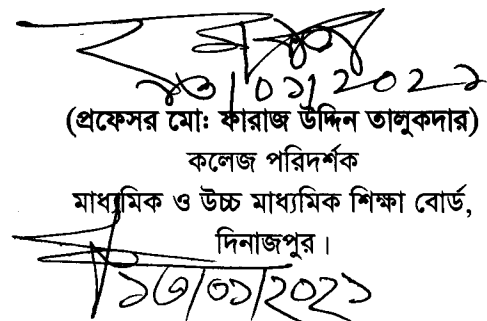 ১৩/০১/২০২১
(প্রফেসর মো: ফারাজ উদ্দিন তালুকদার)
কলেজ পরিদর্শক
মাধ্যমিক ও উচ্চ মাধ্যমিক শিক্ষা বোর্ড,
দিনাজপুর।
১৩/০১/২০২১